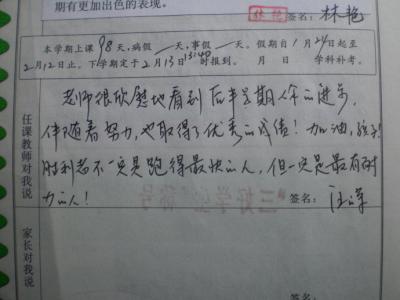 期有更加出色的表现。
林艳 签名：林艳
本学期上课98天，病假一天，事假一天。假期自1月24日起至
2月12日止。下学期定于2月13日13:40时报到。 月 日 学科补考。
任课教师对我说
老师很欣慰地看到后半学期你的进步，
伴随着努力，也取得了优秀的成绩！加油，孩子！
胜利者不一定是跑得最快的人，但一定是最有耐
力的人！
"三好学生"称号
签名：汪萍
家长对我说